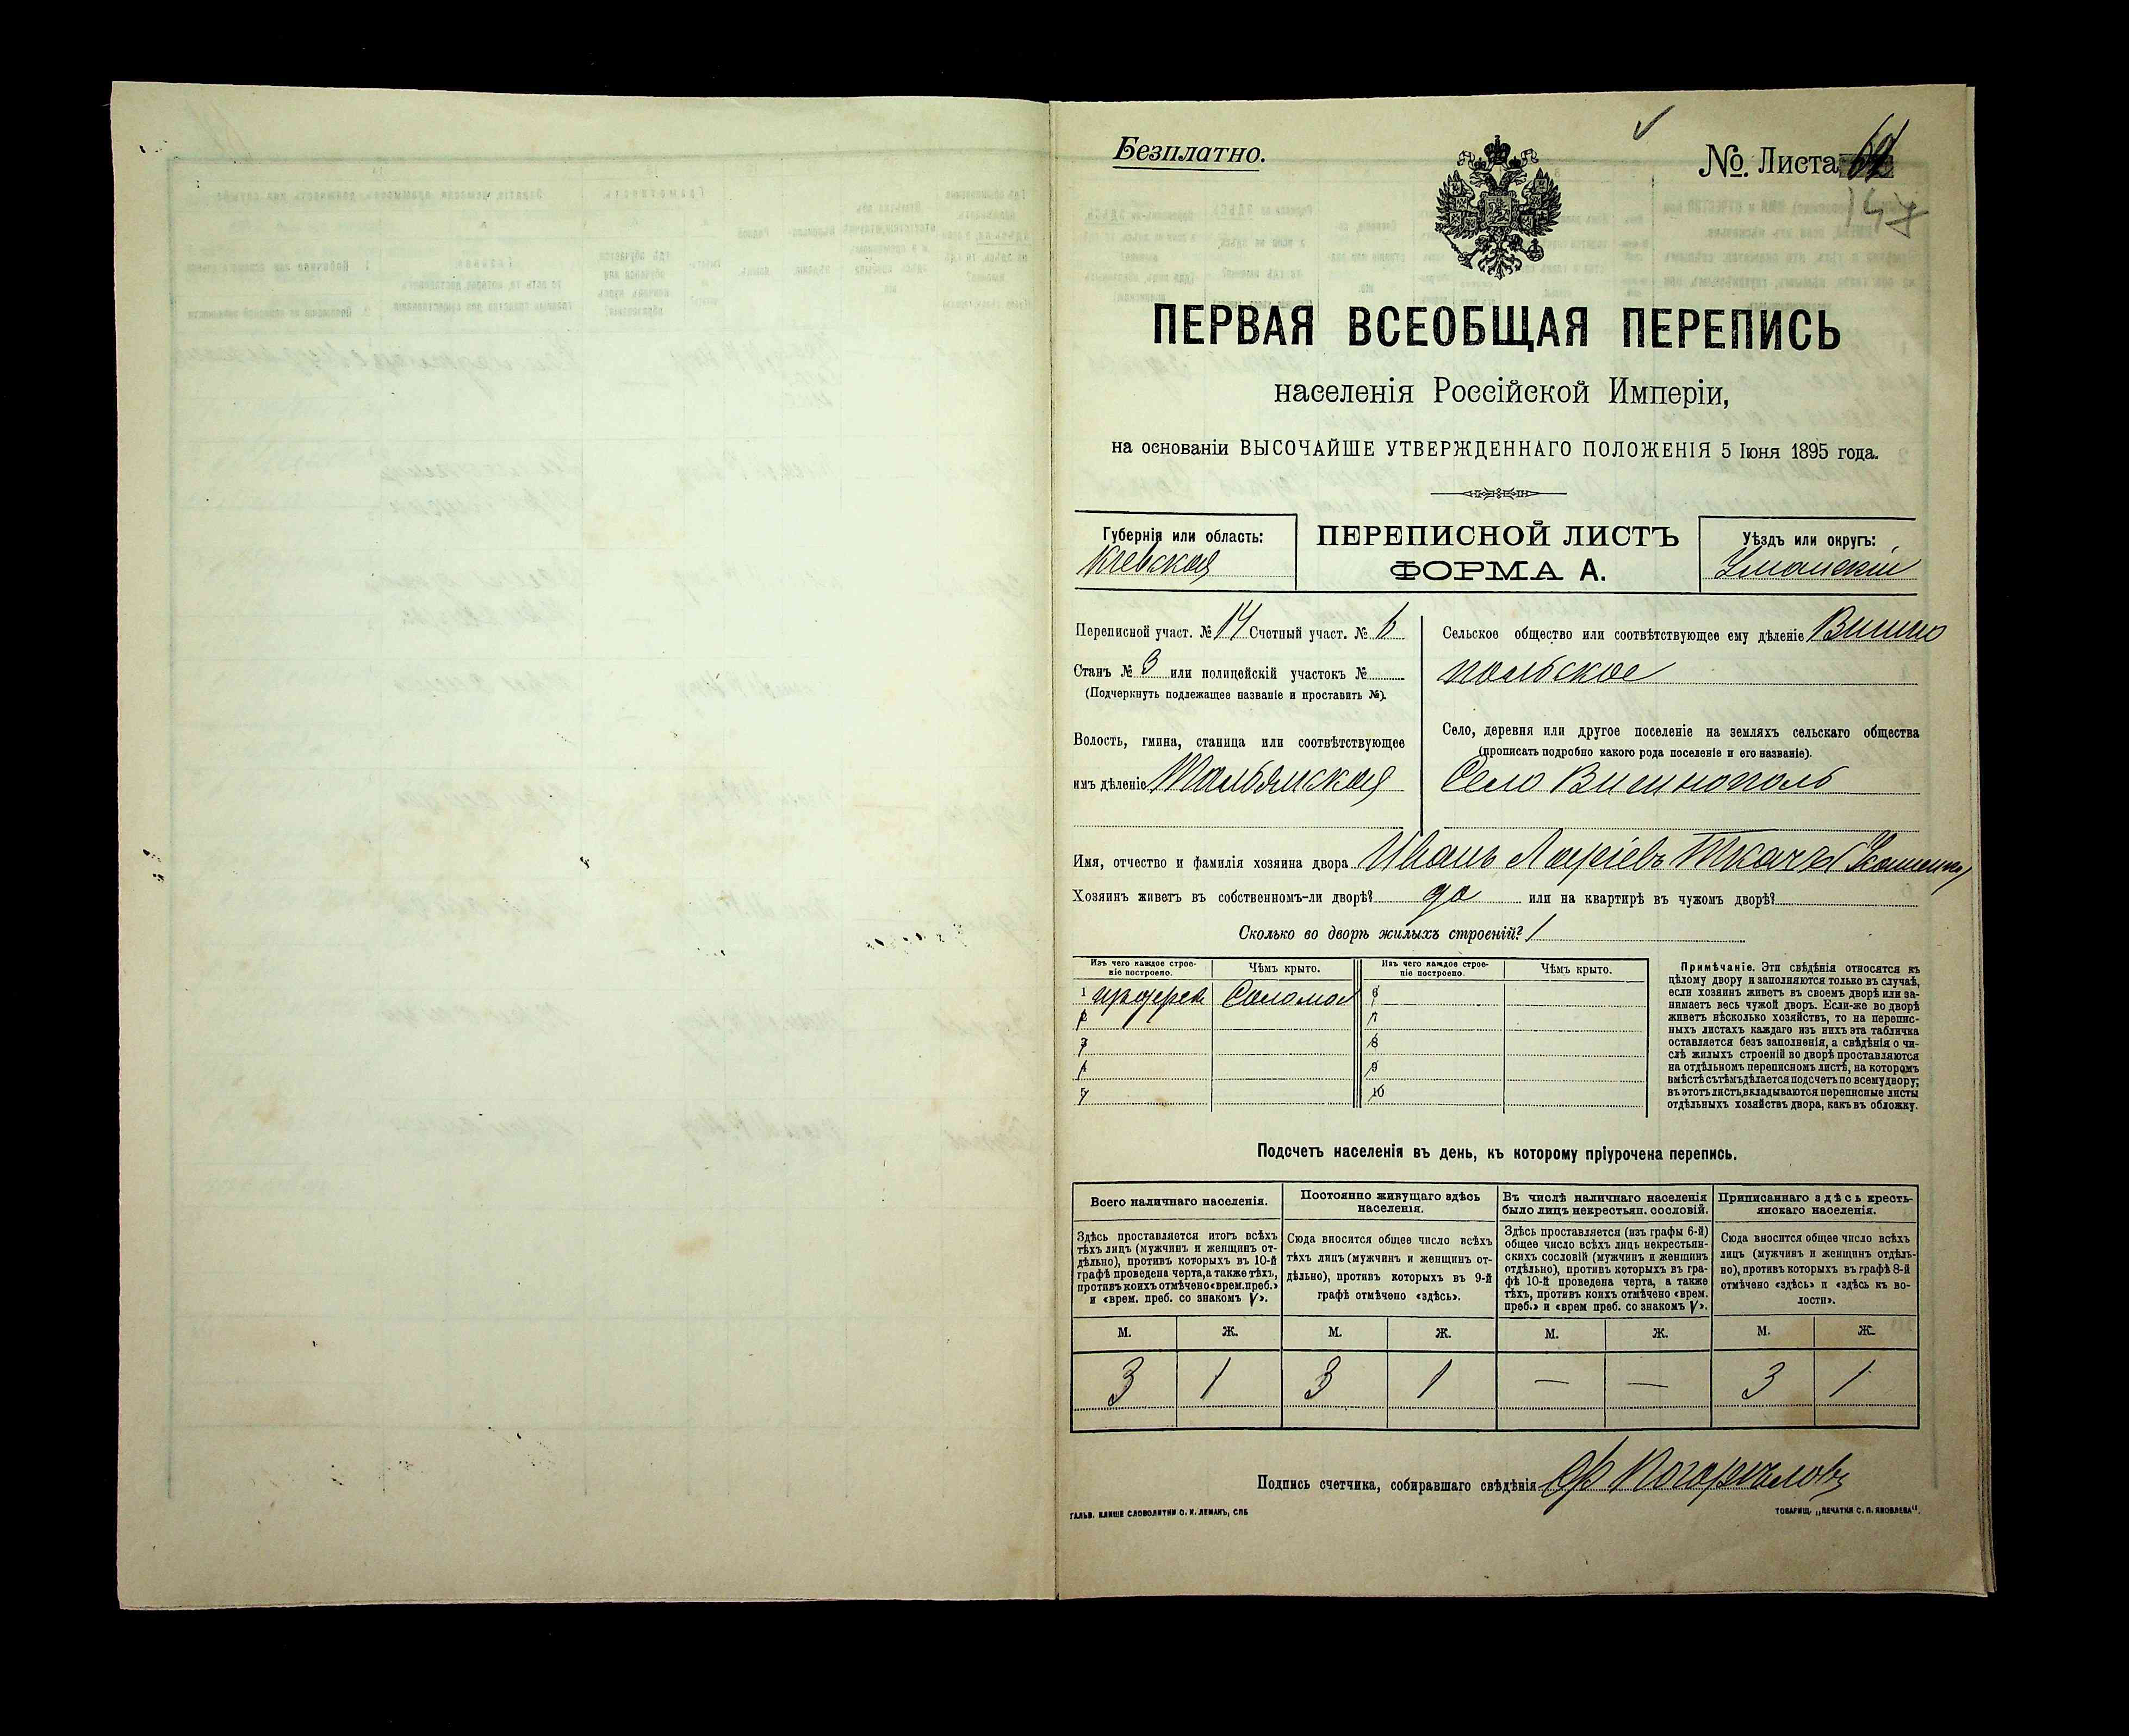 Безплатно.
№. Листа
147
ПЕРВАЯ ВСЕОБЩАЯ ПЕРЕПИСЬ
населенія Россійской Имперіи,
на основаніи ВЫСОЧАЙШЕ УТВЕРЖДЕННАГО ПОЛОЖЕНІЯ 5 Іюня 1895 года.
Губернія или область:
Кіевская
ПЕРЕПИСНОЙ ЛИСТЪ
ФОРМА А.
Уѣздъ или округъ:
Уманскій
Переписной участ. № 14 Счетный участ. № 6
Станъ № 3 или полицейскій участокъ №
(Подчеркнуть подлежащее названіе и проставить №).
Волость, гмина, станица или соотвѣтствующее
имъ дѣленіе Тальянская
Сельское общество или соотвѣтствующее ему дѣленіе Вишно
польское
Село, деревня или другое поселеніе на земляхъ сельскаго общества
(прописать подробно какого рода поселеніе и его названіе).
Село Вишнополь
Имя, отчество и фамилія хозяина двора Иванъ Ларіевъ Ткачъ
Хозяинъ живетъ въ собственномъ-ли дворѣ? да или на квартирѣ въ чужомъ дворѣ?
Сколько во дворѣ жилыхъ строеній? 1
Изъ чего каждое строе-
ніе построено.
Чѣмъ крыто.
Изъ чего каждое строе-
ніе построено.
Чѣмъ крыто.
1 Соломой 6
2 7
3 8
4 9
5 10
Примѣчаніе. Эти свѣдѣнія относятся къ
цѣлому двору и заполняются только въ случаѣ,
если хозяинъ живетъ въ своемъ дворѣ или за-
нимаетъ весь чужой дворъ. Если-же во дворѣ
живетъ нѣсколько хозяйствъ, то на перепис-
ныхъ листахъ каждаго изъ нихъ эта табличка
оставляется безъ заполненія, а свѣдѣнія о чи-
слѣ жилыхъ строеній во дворѣ проставляются
на отдѣльномъ переписномъ листѣ, на которомъ
вмѣстѣ съ тѣмъ дѣлается подсчетъ по всему двору;
въ этотъ листъ вкладываются переписные листы
отдѣльныхъ хозяйствъ двора, какъ въ обложку.
Подсчетъ населенія въ день, къ которому пріурочена перепись.
Всего наличнаго населенія.
Здѣсь проставляется итогъ всѣхъ
тѣхъ лицъ (мужчинъ и женщинъ от-
дѣльно), противъ которыхъ въ 10-й
графѣ проведена черта, а также тѣхъ,
противъ коихъ отмѣчено «врем. преб.»
и «врем. преб. со знакомъ V».
Постоянно живущаго здѣсь
населенія.
Сюда вносится общее число всѣхъ
тѣхъ лицъ (мужчинъ и женщинъ от-
дѣльно), противъ которыхъ въ 9-й
графѣ отмѣчено «здѣсь».
Въ числѣ наличнаго населенія
было лицъ некрестьян. сословій.
Здѣсь проставляется (изъ графы 6-й)
общее число всѣхъ лицъ некрестьян-
скихъ сословій (мужчинъ и женщинъ
отдѣльно), противъ которыхъ въ гра-
фѣ 10-й проведена черта, а также
тѣхъ, противъ коихъ отмѣчено «врем.
преб.» и «врем преб. со знакомъ V».
Приписаннаго здѣсь кресть-
янскаго населенія.
Сюда вносится общее число всѣхъ
лицъ (мужчинъ и женщинъ отдѣль-
но), противъ которыхъ въ графѣ 8-й
отмѣчено «здѣсь» и «здѣсь къ во-
лости».
М. Ж. М. Ж. М. Ж. М. Ж.
3 1 3 1 — — 3 1
Подпись счетчика, собиравшаго свѣдѣнія
ГАЛЬВ. КЛИШЕ СЛОВОЛИТНИ О. И. ЛЕМАНЪ, СПБ
ТОВАРИЩ. „ПЕЧАТНЯ С. П. ЯКОВЛЕВА".